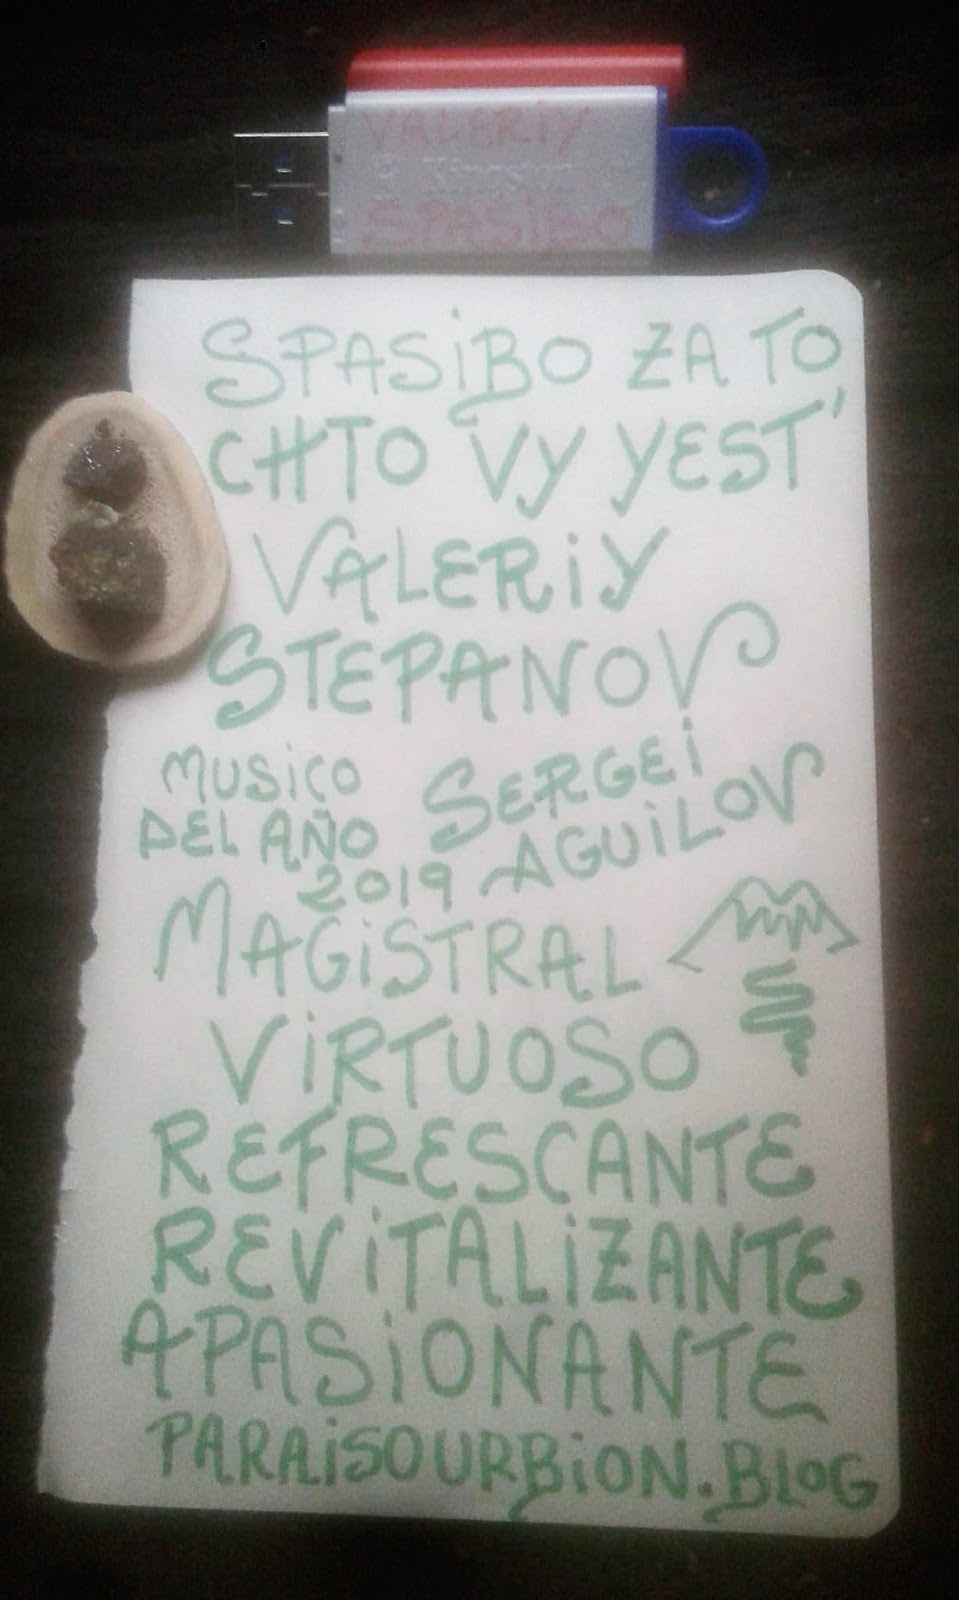 VALERIY
Kingston
SPASiBO
SPASiBO ZA TO
CHTO VY YEST'
VALERiY
STEPANOV
MUSiCO
DEL AÑO
2019
SERGEi
AGUiLOV
MAGiSTRAL
ViRTUOSO
REFRESCANTE
REViTALiZANTE
APASiONANTE
PARAiSOURBiON.BLOG